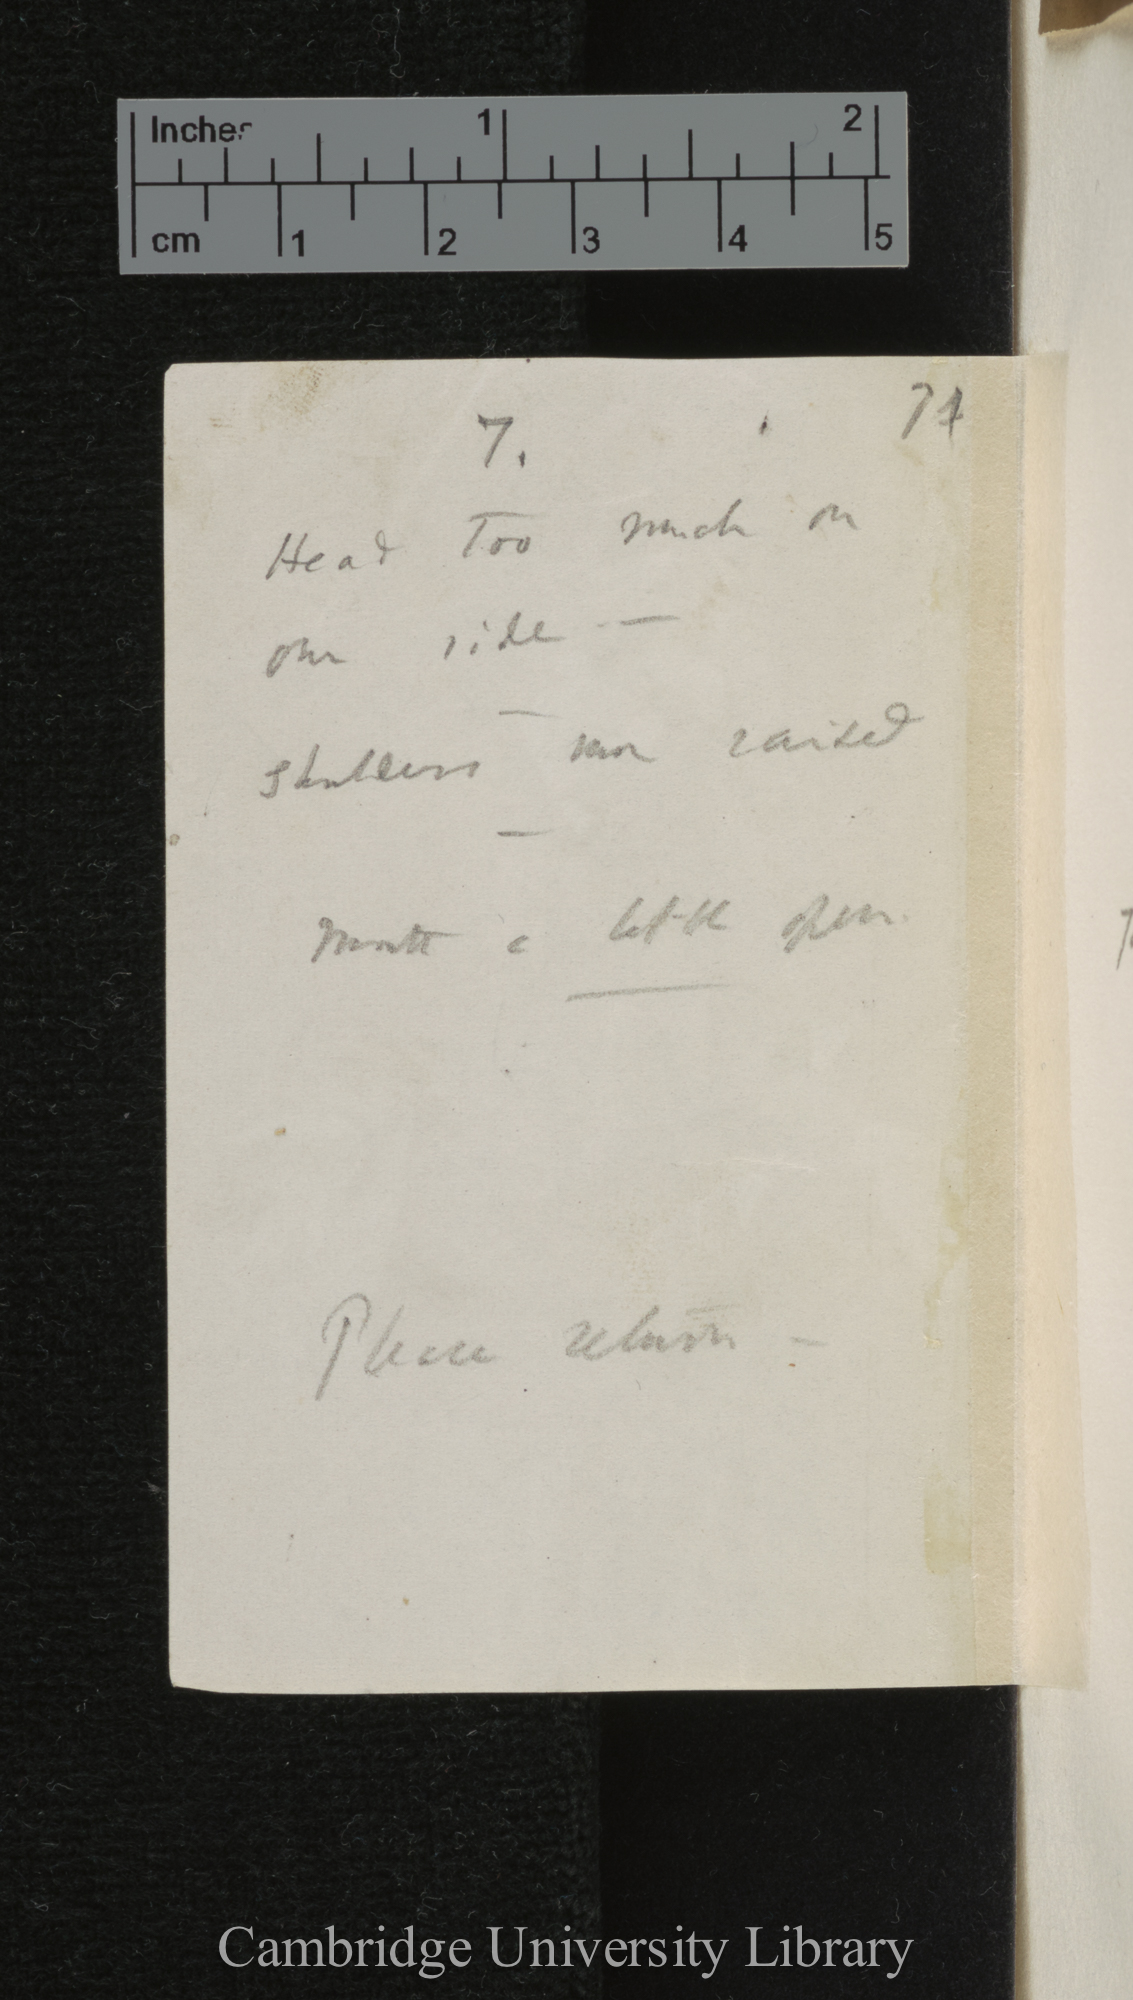 Inches 1 2
cm 1 2 3 4 5
71
7.
Head too much on
one side —
—
Shoulders more raised
—
Mouth a little open.
Please return –
Cambridge University Library